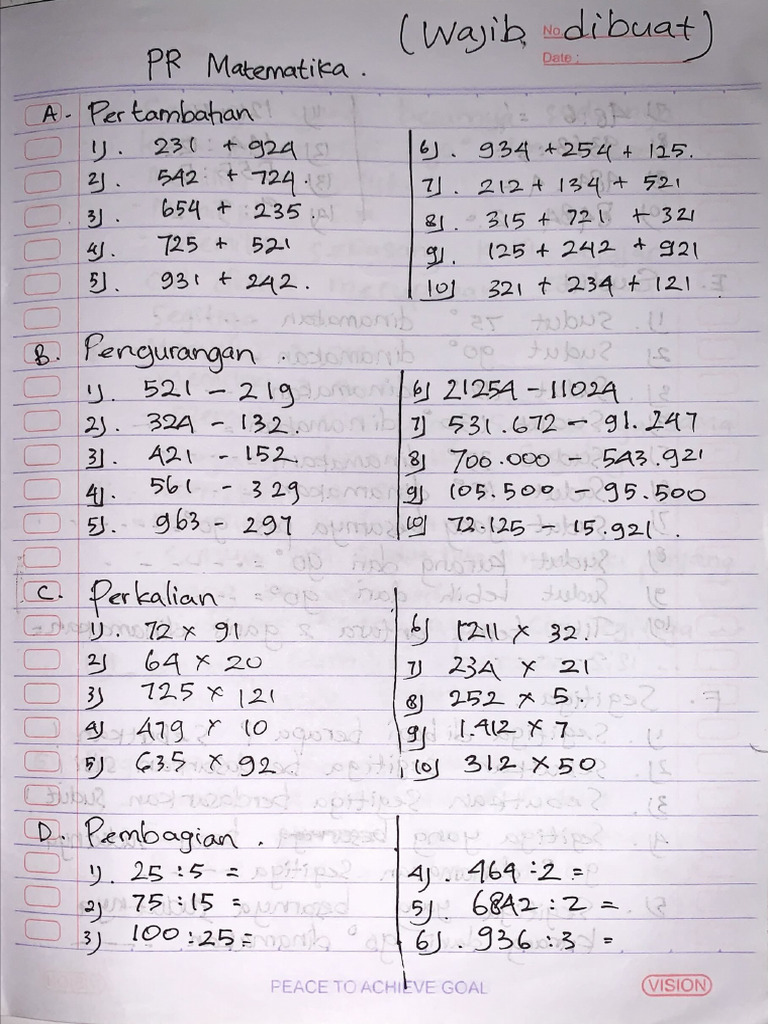 (Wajib dibuat)
No.
Date :
PR Matematika .
A. Pertambahan
1). 231 + 924
2). 542 + 724.
3). 654 + 235.
4). 725 + 521
5). 931 + 242.
6). 934 + 254 + 125.
7). 212 + 134 + 521
8). 315 + 721 + 321
9). 125 + 242 + 921
10) 321 + 234 + 121
B. Pengurangan .
1). 521 - 219
2). 324 - 132.
3). 421 - 152
4). 561 - 329
5). 963 - 297
6) 21254 - 11024
7) 531.672 - 91.247
8) 700.000 - 543.921
9) 105.500 - 95.500
10) 72.125 - 15.921 .
C. Perkalian
1). 72 x 91
2) 64 x 20
3) 725 x 121
4) 479 x 10
5) 635 x 92
6) 1211 x 32.
7) 234 x 21
8) 252 x 5.
9) 1.412 x 7
10) 312 x 50
D. Pembagian .
1). 25 : 5 =
2) 75 : 15 =
3) 100 : 25 =
4). 464 : 2 =
5). 6842 : 2 =
6). 936 : 3 =
PEACE TO ACHIEVE GOAL
VISION